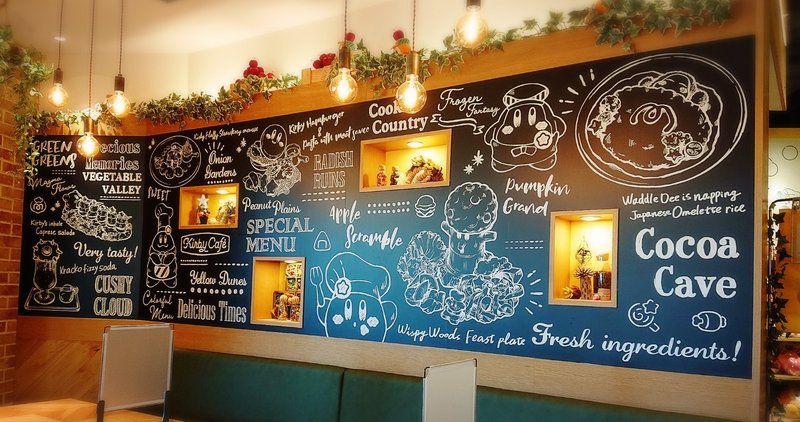 GREEN
GREENS
Precious
Memories
VEGETABLE
VALLEY
Magma
Kirby's inhale
Caprese salada
Very tasty!
Kracko fizzy soda
CUSHY
CLOUD
Kirby Fluffy Strawberry mousse
Onion
Gardens
SWEET
Kirby Café
Yellow Dunes
Colorful
Menu
Delicious Times
Kirby Hamburger
&
Pasta with meat sauce
RADISH
RUINS
Peanut Plains
SPECIAL
MENU
Apple
Scramble
Cook
Country
Frozen
Fantasy
Pumpkin
Grand
Wispy Woods Feast plate
Fresh ingredients!
Waddle Dee is napping
Japanese Omelette rice
Cocoa
Cave